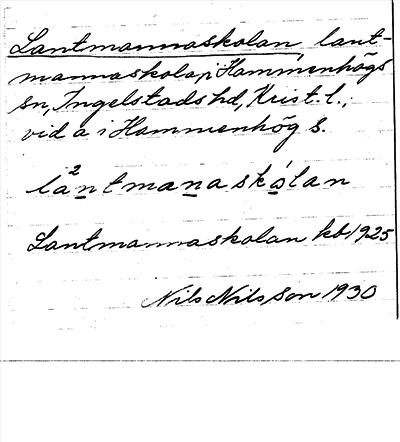 Lantmannaskolan, lant-
mannaskola, i Hammenhögs
sn, Ingelstads hd, Krist. l.;
vid å i Hammenhög s.
la²ntmanaskólan
Lantmannaskolan kb 1925
Nils Nilsson 1930